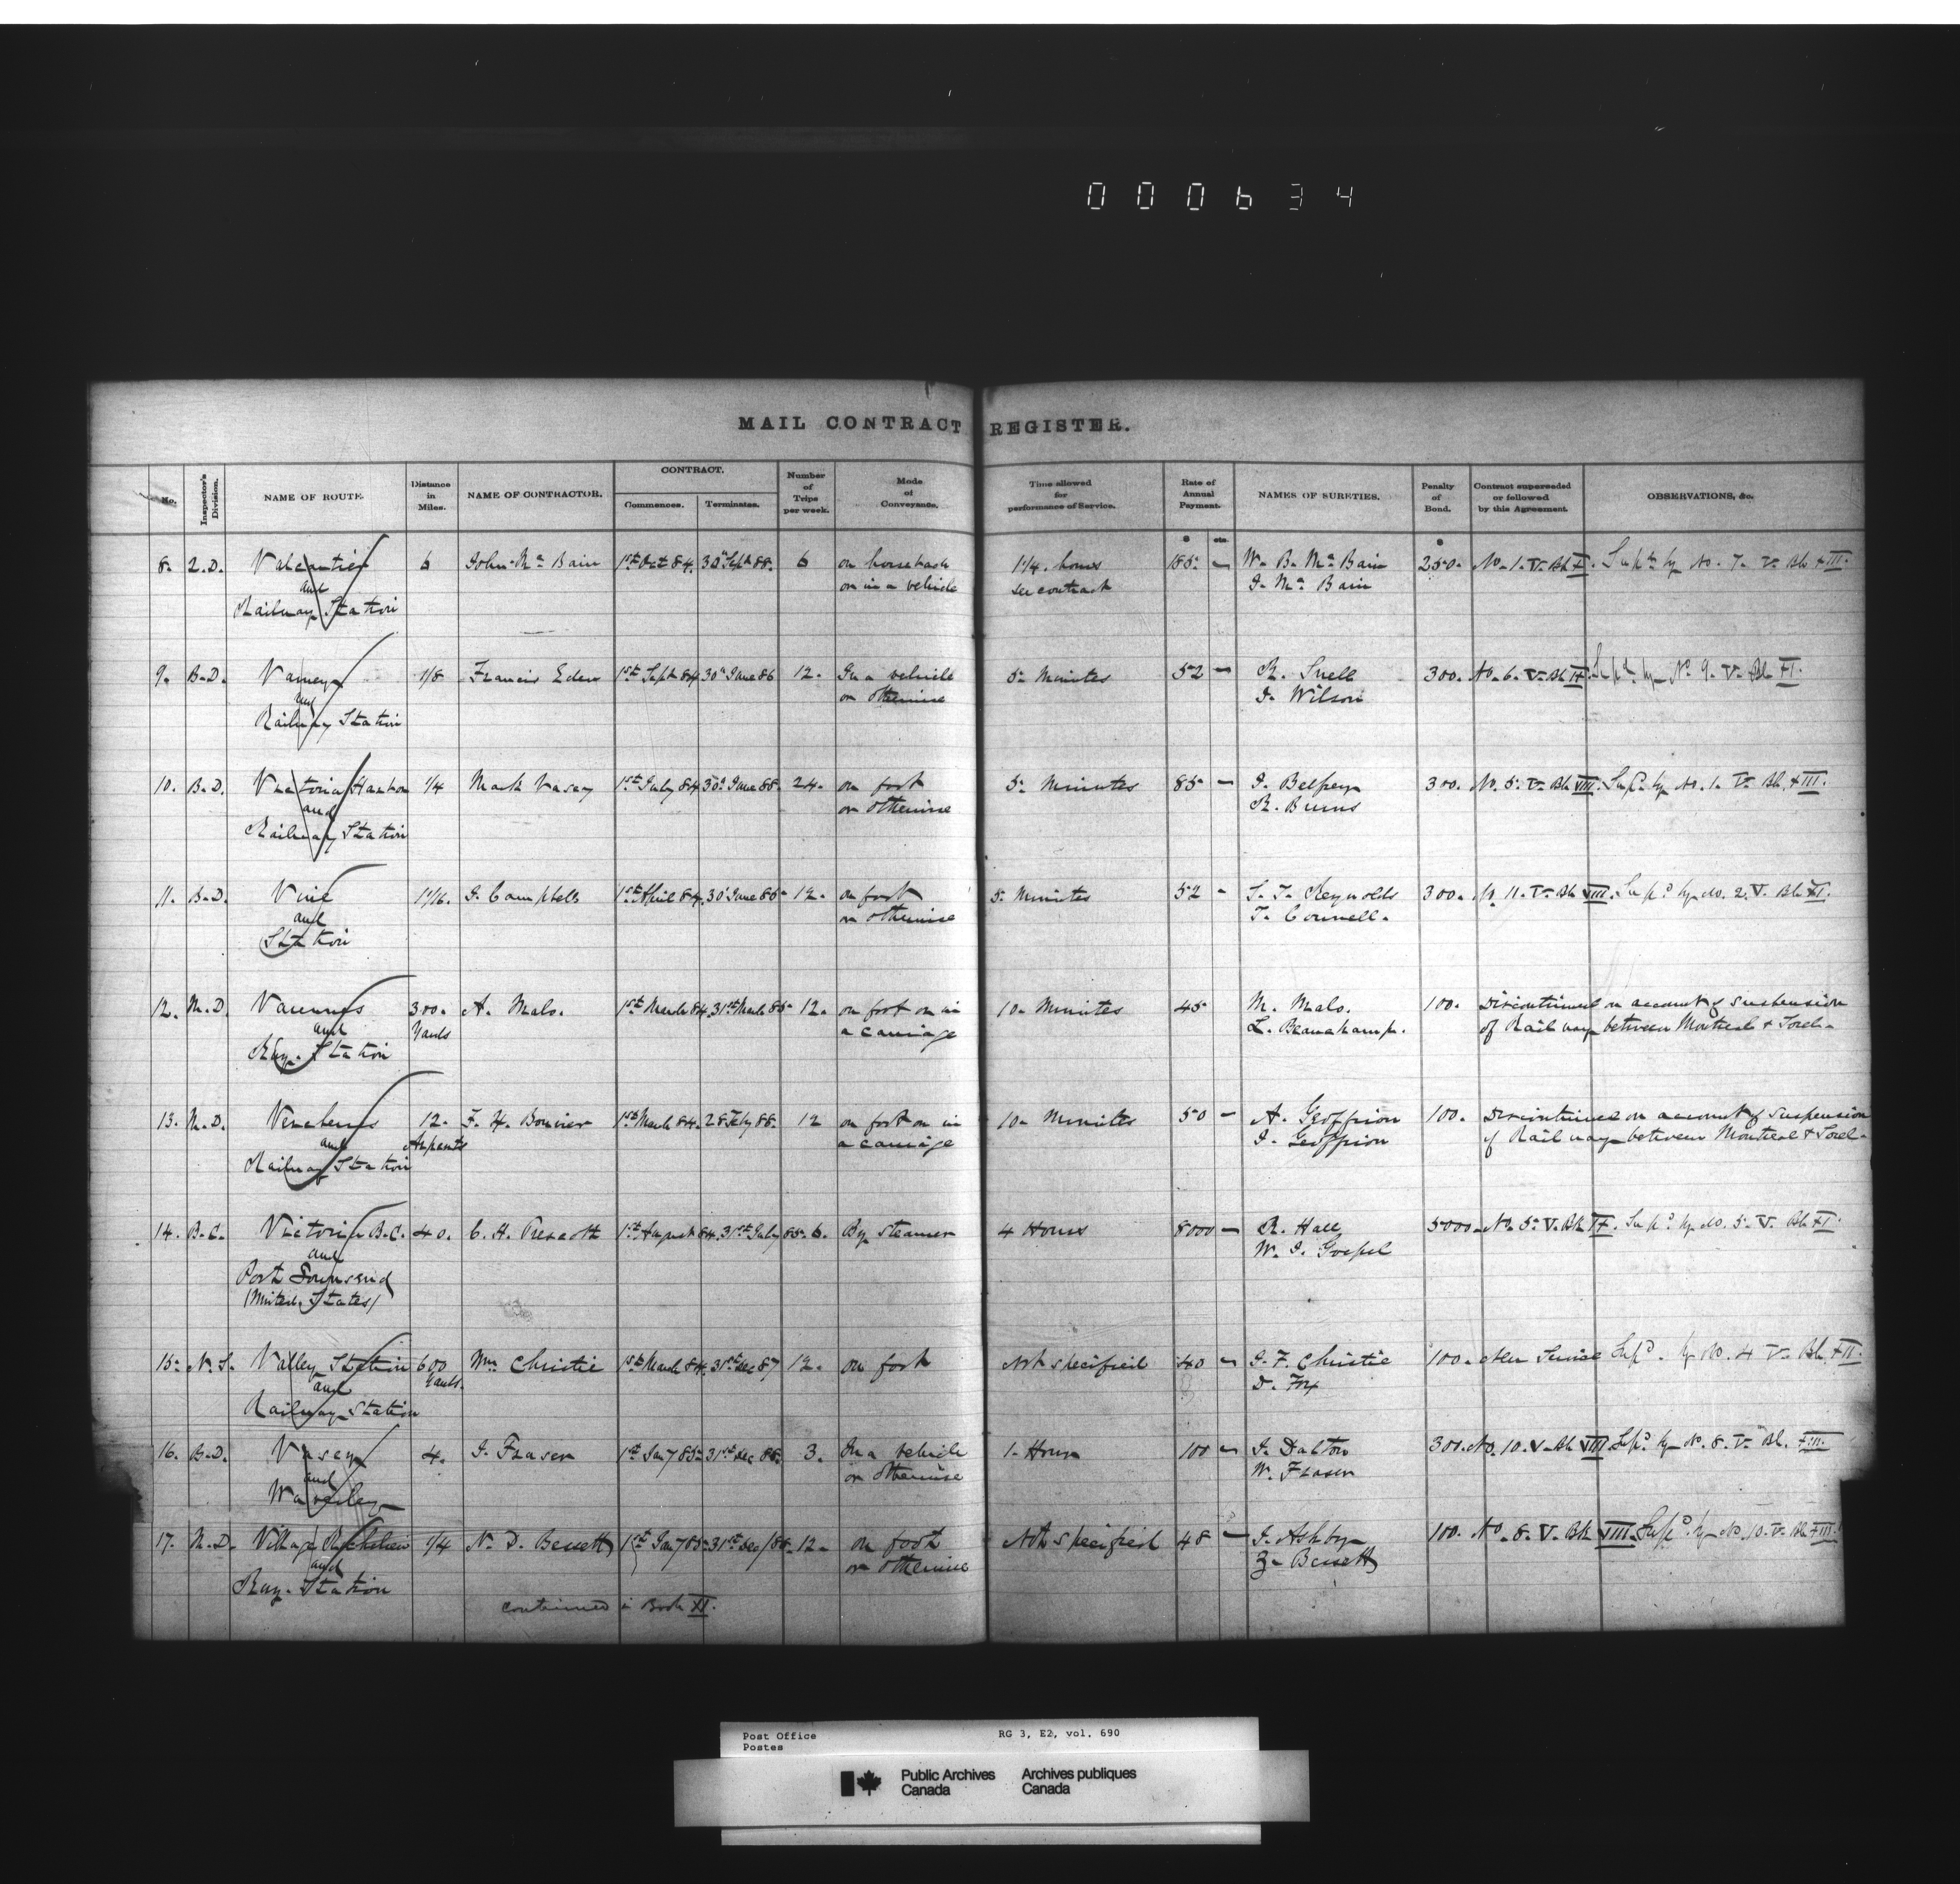 000634
MAIL CONTRACT REGISTER.
No. Inspector's Division. NAME OF ROUTE. Distance in Miles. NAME OF CONTRACTOR. CONTRACT. Commences. Terminates. Number of Trips per week. Mode of Conveyance. Time allowed for performance of Service. Rate of Annual Payment. NAMES OF SURETIES. Penalty of Bond. Contract superseded or followed by this Agreement. OBSERVATIONS, &c.
$ cts. $
8. Q.D. Valcartier 6 John Mc Bain 1st Oct 84. 30th Sept 88. 6 on horseback 1 1/4 hours 185 — W. B. Mc Bain 250. No. 1. V. Bk X. Supd by No. 7. V. Bk XIII.
and or in a vehicle see contract J. Mc Bain
Railway Station
9. B.D. Varney 1/8 Francis Eden 1st Sept 84 30th June 86 12. In a vehicle 5 Minutes 52 — R. Snell 300. No. 6. V. Bk IX. Supd by No 9. V. Bk XI.
and or otherwise J. Wilson
Railway Station
10. B.D. Victoria Harbor 1/4 Mark Vasey 1st July 84 30th June 88. 24. on foot 5 Minutes 85 — J. Belfrey 300. No. 5. V. Bk VIII. Supd by No. 1. V. Bk XIII.
and or otherwise R. Burns
Railway Station
11. B.D. Vine 1/16. J. Campbell 1st April 84. 30 June 85 12. on foot 5 Minutes 52 - T. Reynolds 300. 11. V. Bk VIII. Supd by No. 2. V. Bk XI.
and or otherwise T. Connell.
Station
12. M.D. Varennes 300. A. Malo. 1st March 84. 31st March 85 12. on foot or in 10 Minutes 45 M. Malo. 100. Discontinued on account of suspension
and Yards a carriage L. Beauchamp. of Railway between Montreal & Sorel.
Rly. Station
13. M.D. Vercheres 12. F. H. Bouvier 1st March 84. 28 Feby 88. 12 on foot or in 10 Minutes 50 — A. Geoffrion 100. Discontinued on account of suspension
and Arpents a carriage J. Geoffrion of Railway between Montreal & Sorel.
Railway Station
14. B.C. Victoria B.C. 40. C. H. Prescott 1st August 84. 31st July 85. 6. By Steamer 4 Hours 8000 — R. Hall 5000. No. 5. V. Bk IX. Supd by No. 5. V. Bk XI.
and W. J. Goepel
Port Townsend
(United States)
15. N.S. Valley Station 600 Wm Christie 1st March 84. 31st Dec 87 12. on foot Not specified 40 — J. F. Christie 100. New Service Supd. by No. 4 V. Bk XII.
and Yards. D. Fox
Railway Station
16. B.D. Vasey 4. J. Fraser 1st Jany 85 31st Dec 88. 3. In a vehicle 1 Hour 100 — J. Dalton 300. No. 10. V. Bk VIII Supd by No. 8. V. Bk. XIII.
and or otherwise W. Fraser
Waverley
17. M.D. Village Richelieu 1/4 N. D. Bessett 1st Jany 85 31st Dec/88. 12. on foot Not specified 48 — J. Ashby 100. No. 8. V. Bk VIII. Supd by No. 10. V. Bk XIII.
and or otherwise Z. Bessett
Ray. Station
continued in Book XI.
Post Office RG 3, E2, vol. 690
Postes
Public Archives Archives publiques
Canada Canada